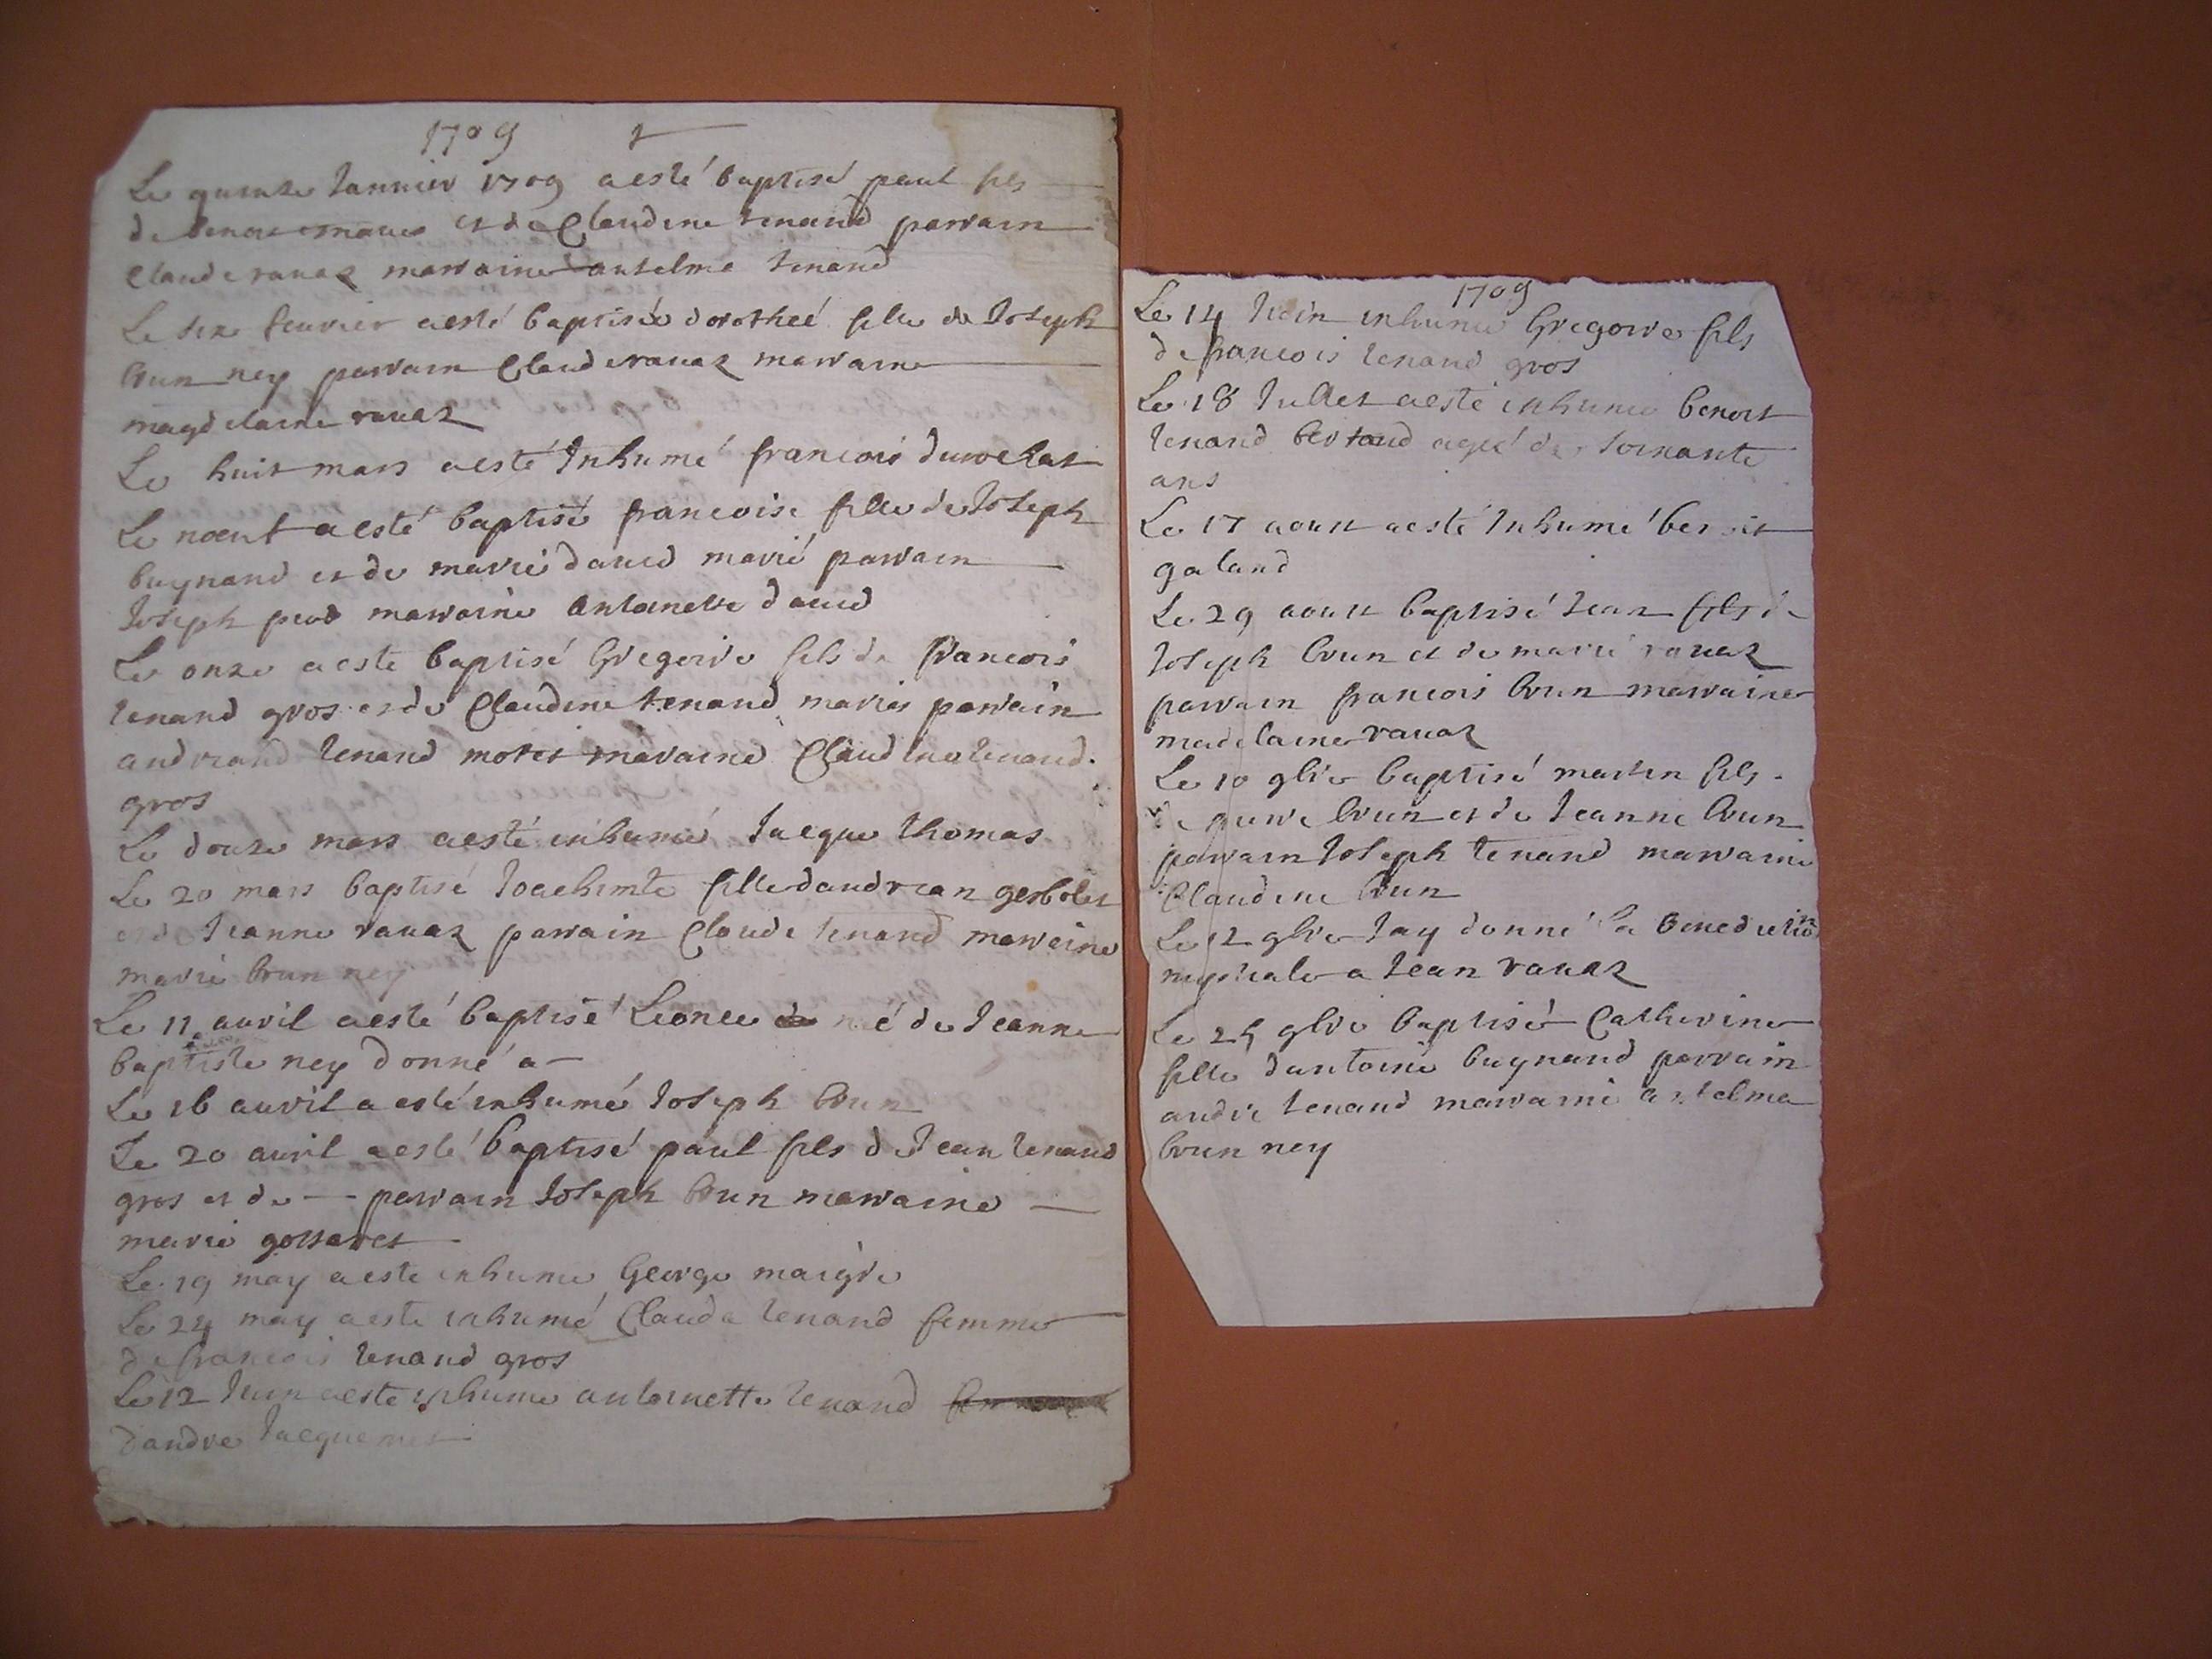 1709
Le quinze Januier 1709 a esté baptisé paul fils
de benoit et de Claudine tenand parrain
Claude rauaz marraine antelme tenand
Le dix feurier a esté baptisée dorotheé fille de Joseph
brun ney parrain Claude rauaz marraine
magdelaine rauaz
Le huit mars a esté Inhumé francois
Le neuf a esté baptisé francoise fille de Joseph
buynand et de marie dauid marié parrain
Joseph marraine antoinette dauid
Le onze a este baptisé Gregoire fils de francois
tenand gros et de Claudine tenand mariés parrain
tenand maraine tenand
gros
Le douze mars a esté inhumé Jacque thomas
Le 20 mars baptisé Joachimte fille
et de Jeanne rauaz parrain Claude tenand maraine
marie brun ney
Le 11 auril a esté baptisé Leonce né de Jeanne
baptiste ney donné a —
Le 16 auril a esté inhumé Joseph brun
Le 20 auril a esté baptisé paul fils de Jean tenand
gros et de — - parrain Joseph brun marraine —
marie
Le 19 may a este inhume George maigre
Le 24 may a este inhumé Claude tenand femme
de francois tenand gros
Le 12 Juin a este inhume antoinette tenand
dandre Jacquemet
1709
Le 14 Juin inhume Gregoire fils
de francois tenand gros
Le 18 Jullet a esté inhume benoit
tenand agé de soixante
ans
Le 17 aoust a esté Inhumé benoit
galand
Le 29 aoust baptisé Jean fils de
Joseph brun et de marie rauaz
parrain francois brun marraine
madelaine rauaz
Le 10 9bre baptisé martin fils
de pierre brun et de Jeanne brun
parrain Joseph tenand marraine
Claudine brun
Le 12 9bre Jay donné la benediction
nuptiale a Jean rauaz
Le 25 9bre baptisé Catherine
fille dantoine buynand parrain
andre tenand marraine antelme
brun ney